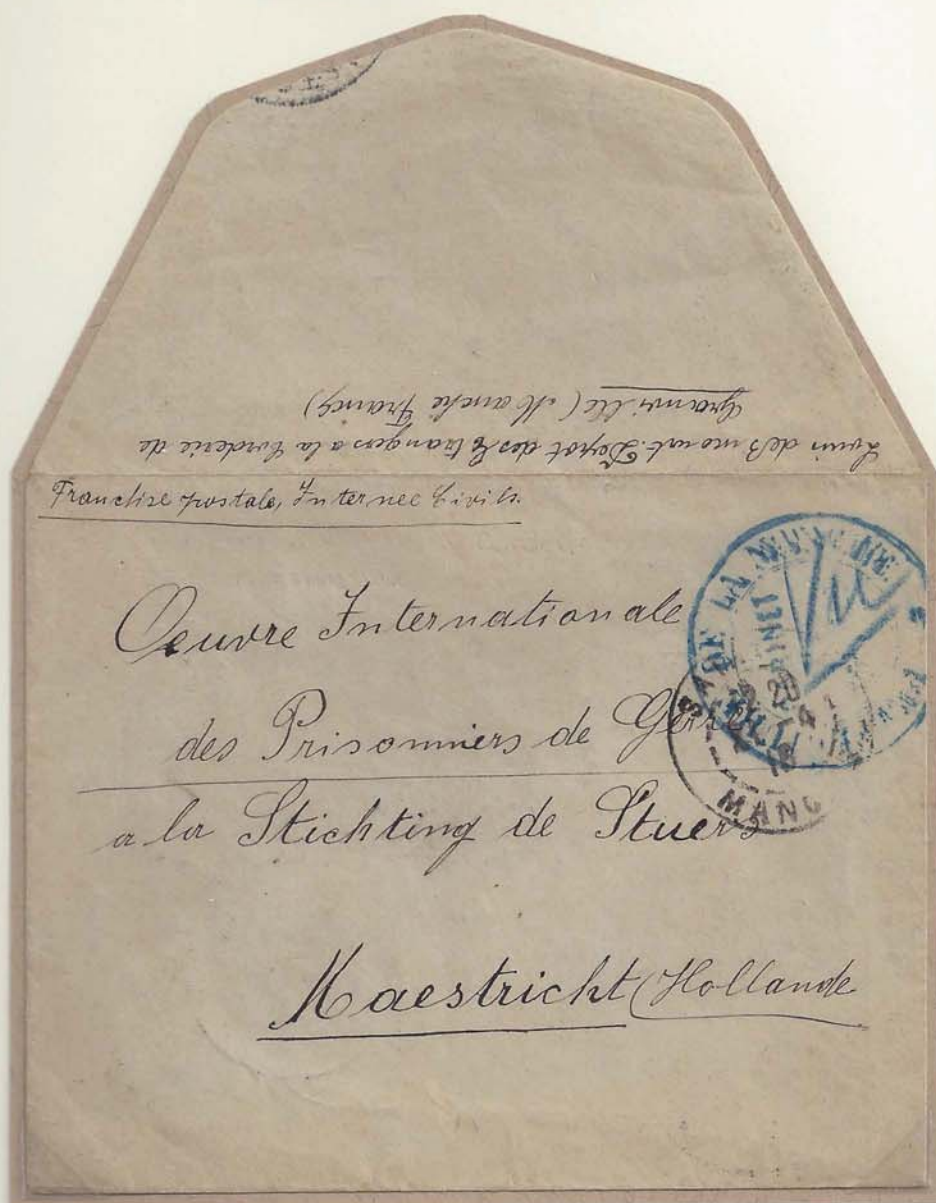 Louis de Depot des Etrangers a la Corderie de
Granville (Manche France)
Franchise postale, Internee Civils
Oeuvre Internationale
des Prisonniers de
a la Stichting de Stuers
Maestricht (Hollande
DE LA
Vu
20
MANC